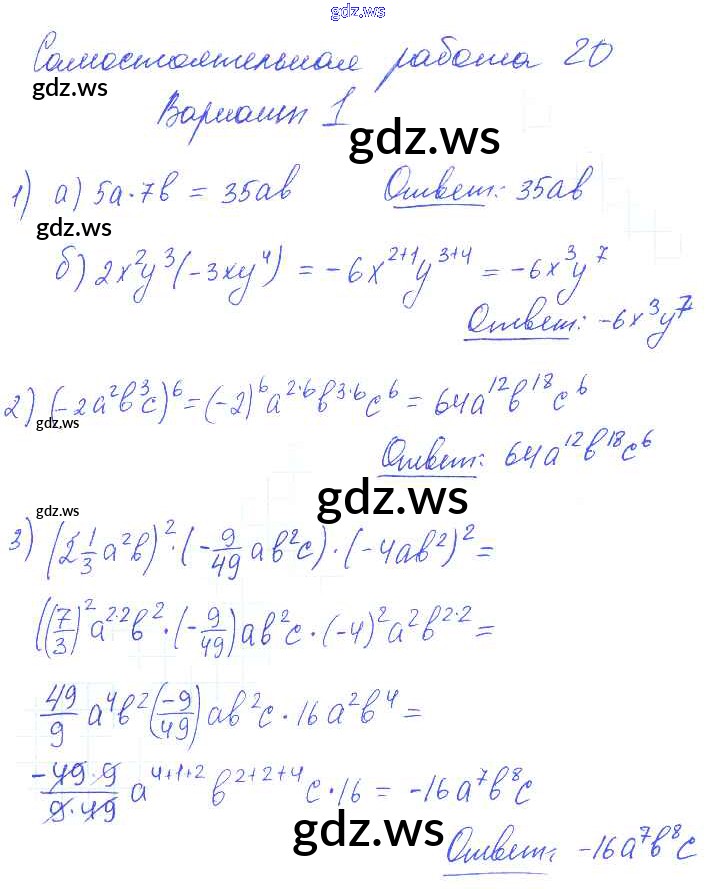 gdz.ws
Самостоятельная работа 20
gdz.ws
Вариант 1
gdz.ws
1) а) 5a·7b = 35ab Ответ: 35ab
gdz.ws
б) 2x²y³(-3xy⁴) = -6x²⁺¹y³⁺⁴ = -6x³y⁷
Ответ: -6x³y⁷
2) (-2a²b³c)⁶ = (-2)⁶a²·⁶b³·⁶c⁶ = 64a¹²b¹⁸c⁶
gdz.ws
Ответ: 64a¹²b¹⁸c⁶
gdz.ws
gdz.ws
3) (2 1/3 a²b)²·(-9/49 ab²c)·(-4ab²)² =
((7/3)²a²·²b²·(-9/49)ab²c·(-4)²a²b²·² =
49/9 a⁴b²(-9/49)ab²c·16a²b⁴ =
-49·9/9·49 a⁴⁺¹⁺²b²⁺²⁺⁴c·16 = -16a⁷b⁸c
gdz.ws
Ответ: -16a⁷b⁸c